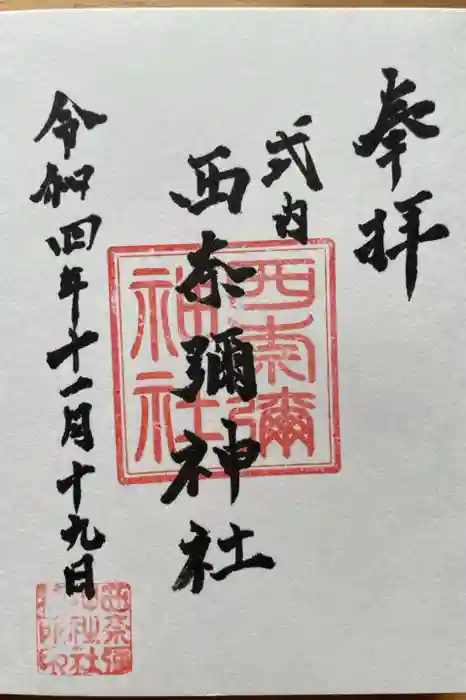 奉拝
式内
西奈彌神社
令和四年十一月十九日
西奈彌
神社